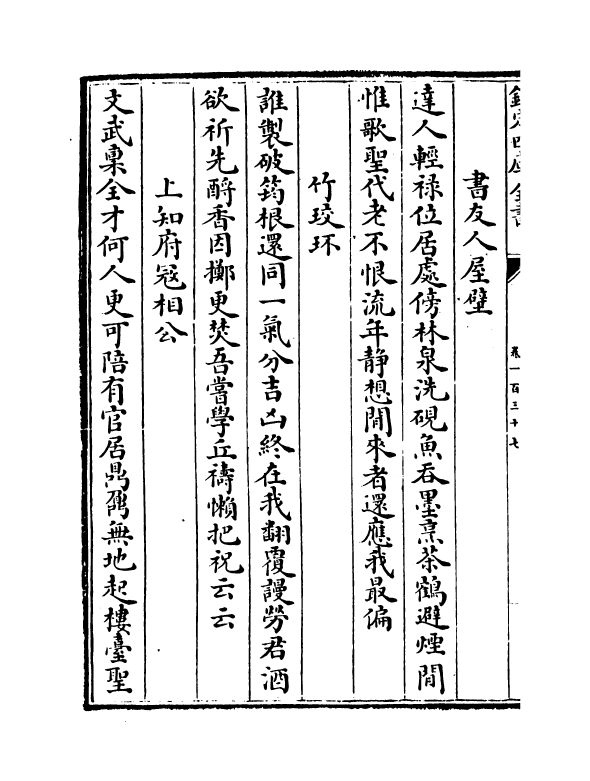 欽定四庫全書
卷一百三十七
書友人屋壁
達人輕禄位居處傍林泉洗硯魚吞墨烹茶鶴避煙閒
惟歌聖代老不恨流年静想閒來者還應我最偏
竹珓环
誰製破筠根還同一氣分吉凶終在我翻覆謾勞君酒
欲祈先酹香因擲更焚吾嘗學丘禱懶把祝云云
上知府冦相公
文武稟全才何人更可陪有官居鼎鼐無地起樓臺聖